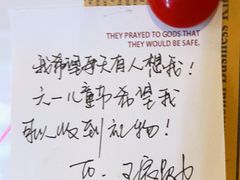 THEY PRAYED TO GODS THAT
THEY WOULD BE SAFE.
我希望每天有人想我!
六一儿童节希望我
可以收到礼物!
To.
Business